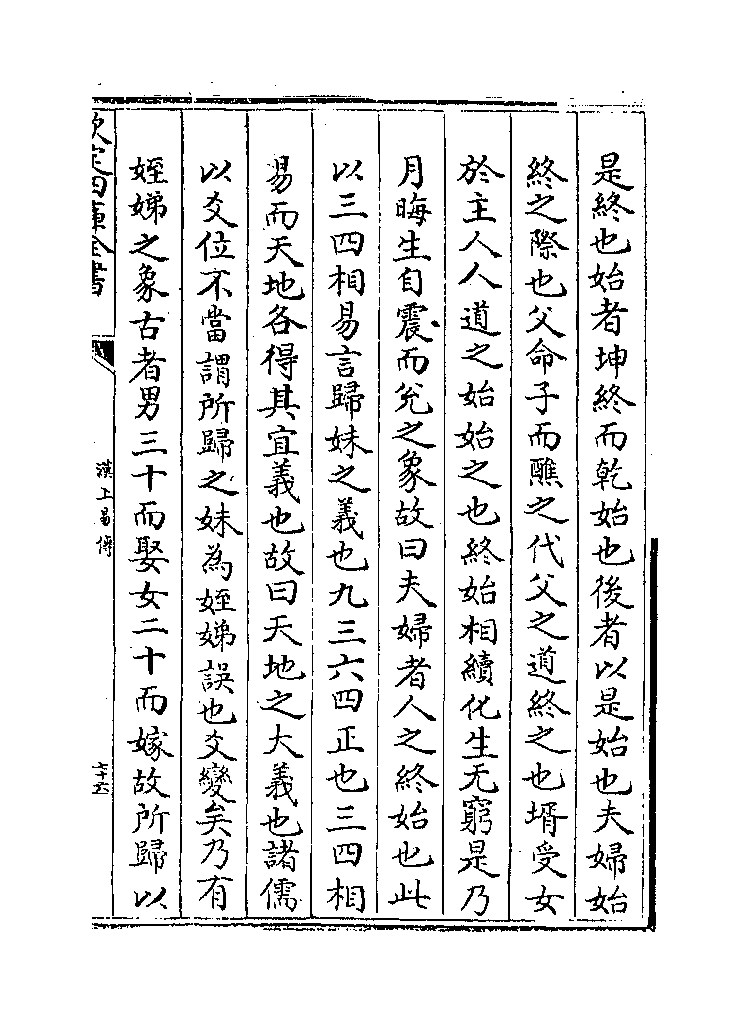 是終也始者坤終而乾始也後者以是始也夫婦始
終之際也父命子而醮之代父之道終之也壻受女
於主人人道之始始之也終始相續化生无窮是乃
月晦生自震而兊之象故曰夫婦者人之終始也此
以三四相易言歸妹之義也九三六四正也三四相
易而天地各得其宜義也故曰天地之大義也諸儒
以爻位不當謂所歸之妹為姪娣誤也爻變矣乃有
姪娣之象古者男三十而娶女二十而嫁故所歸以
欽定四庫全書
漢上易傳